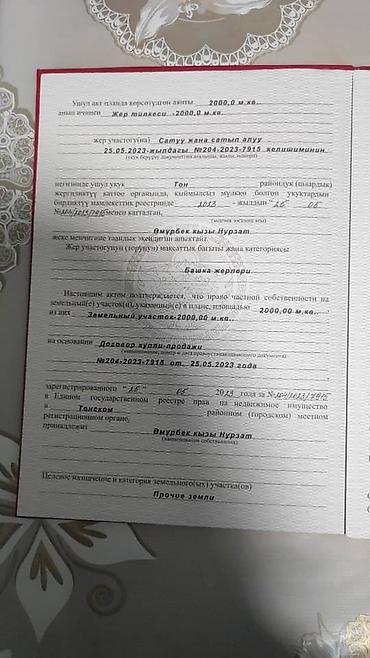 Ушул акт планда көрсөтүлгөн аянты 2000,0 м.кв.
анын ичинен Жер тилкеси -2000,0 м.кв.
жер участогу(на) Сатуу жана сатып алуу
25.05.2023-жылдагы №204-2023-7915 келишиминин
(укук берүүчү документтин аталышы, күнү, номери)
негизинде ушул укук Тон райондук (шаардык)
жергиликтүү каттоо органында, кыймылсыз мүлккө болгон укуктардын
бирдиктүү мамлекеттик реестринде 2023 - жылдын "25" 05
№204/2023/7915 менен катталган,
Өмүрбек кызы Нурзат
(менчик ээсинин аты)
жеке менчигине таандык экендигин аныктайт.
Жер участогунун (торунун) максаттык багыты жана категориясы
Башка жерлери
Настоящим актом подтверждается, что право частной собственности на
земельный(е) участок(и), указанный(е) в плане, площадью 2000,00 м.кв..
из них Земельный участок-2000,00 м.кв..
на основании Договор купли-продажи
(наименование, номер и дата правоустанавливающего документа)
№204-2023-7915 от. 25.05.2023 года
зарегистрированного "25" 05 2023 года за №204/2023/7915
в Едином государственном реестре прав на недвижимое имущество
в Тонском районном (городском) местном
регистрационном органе,
принадлежит Өмүрбек кызы Нурзат
(наименование собственника)
Целевое назначение и категория земельного(ых) участка(ов)
Прочие земли